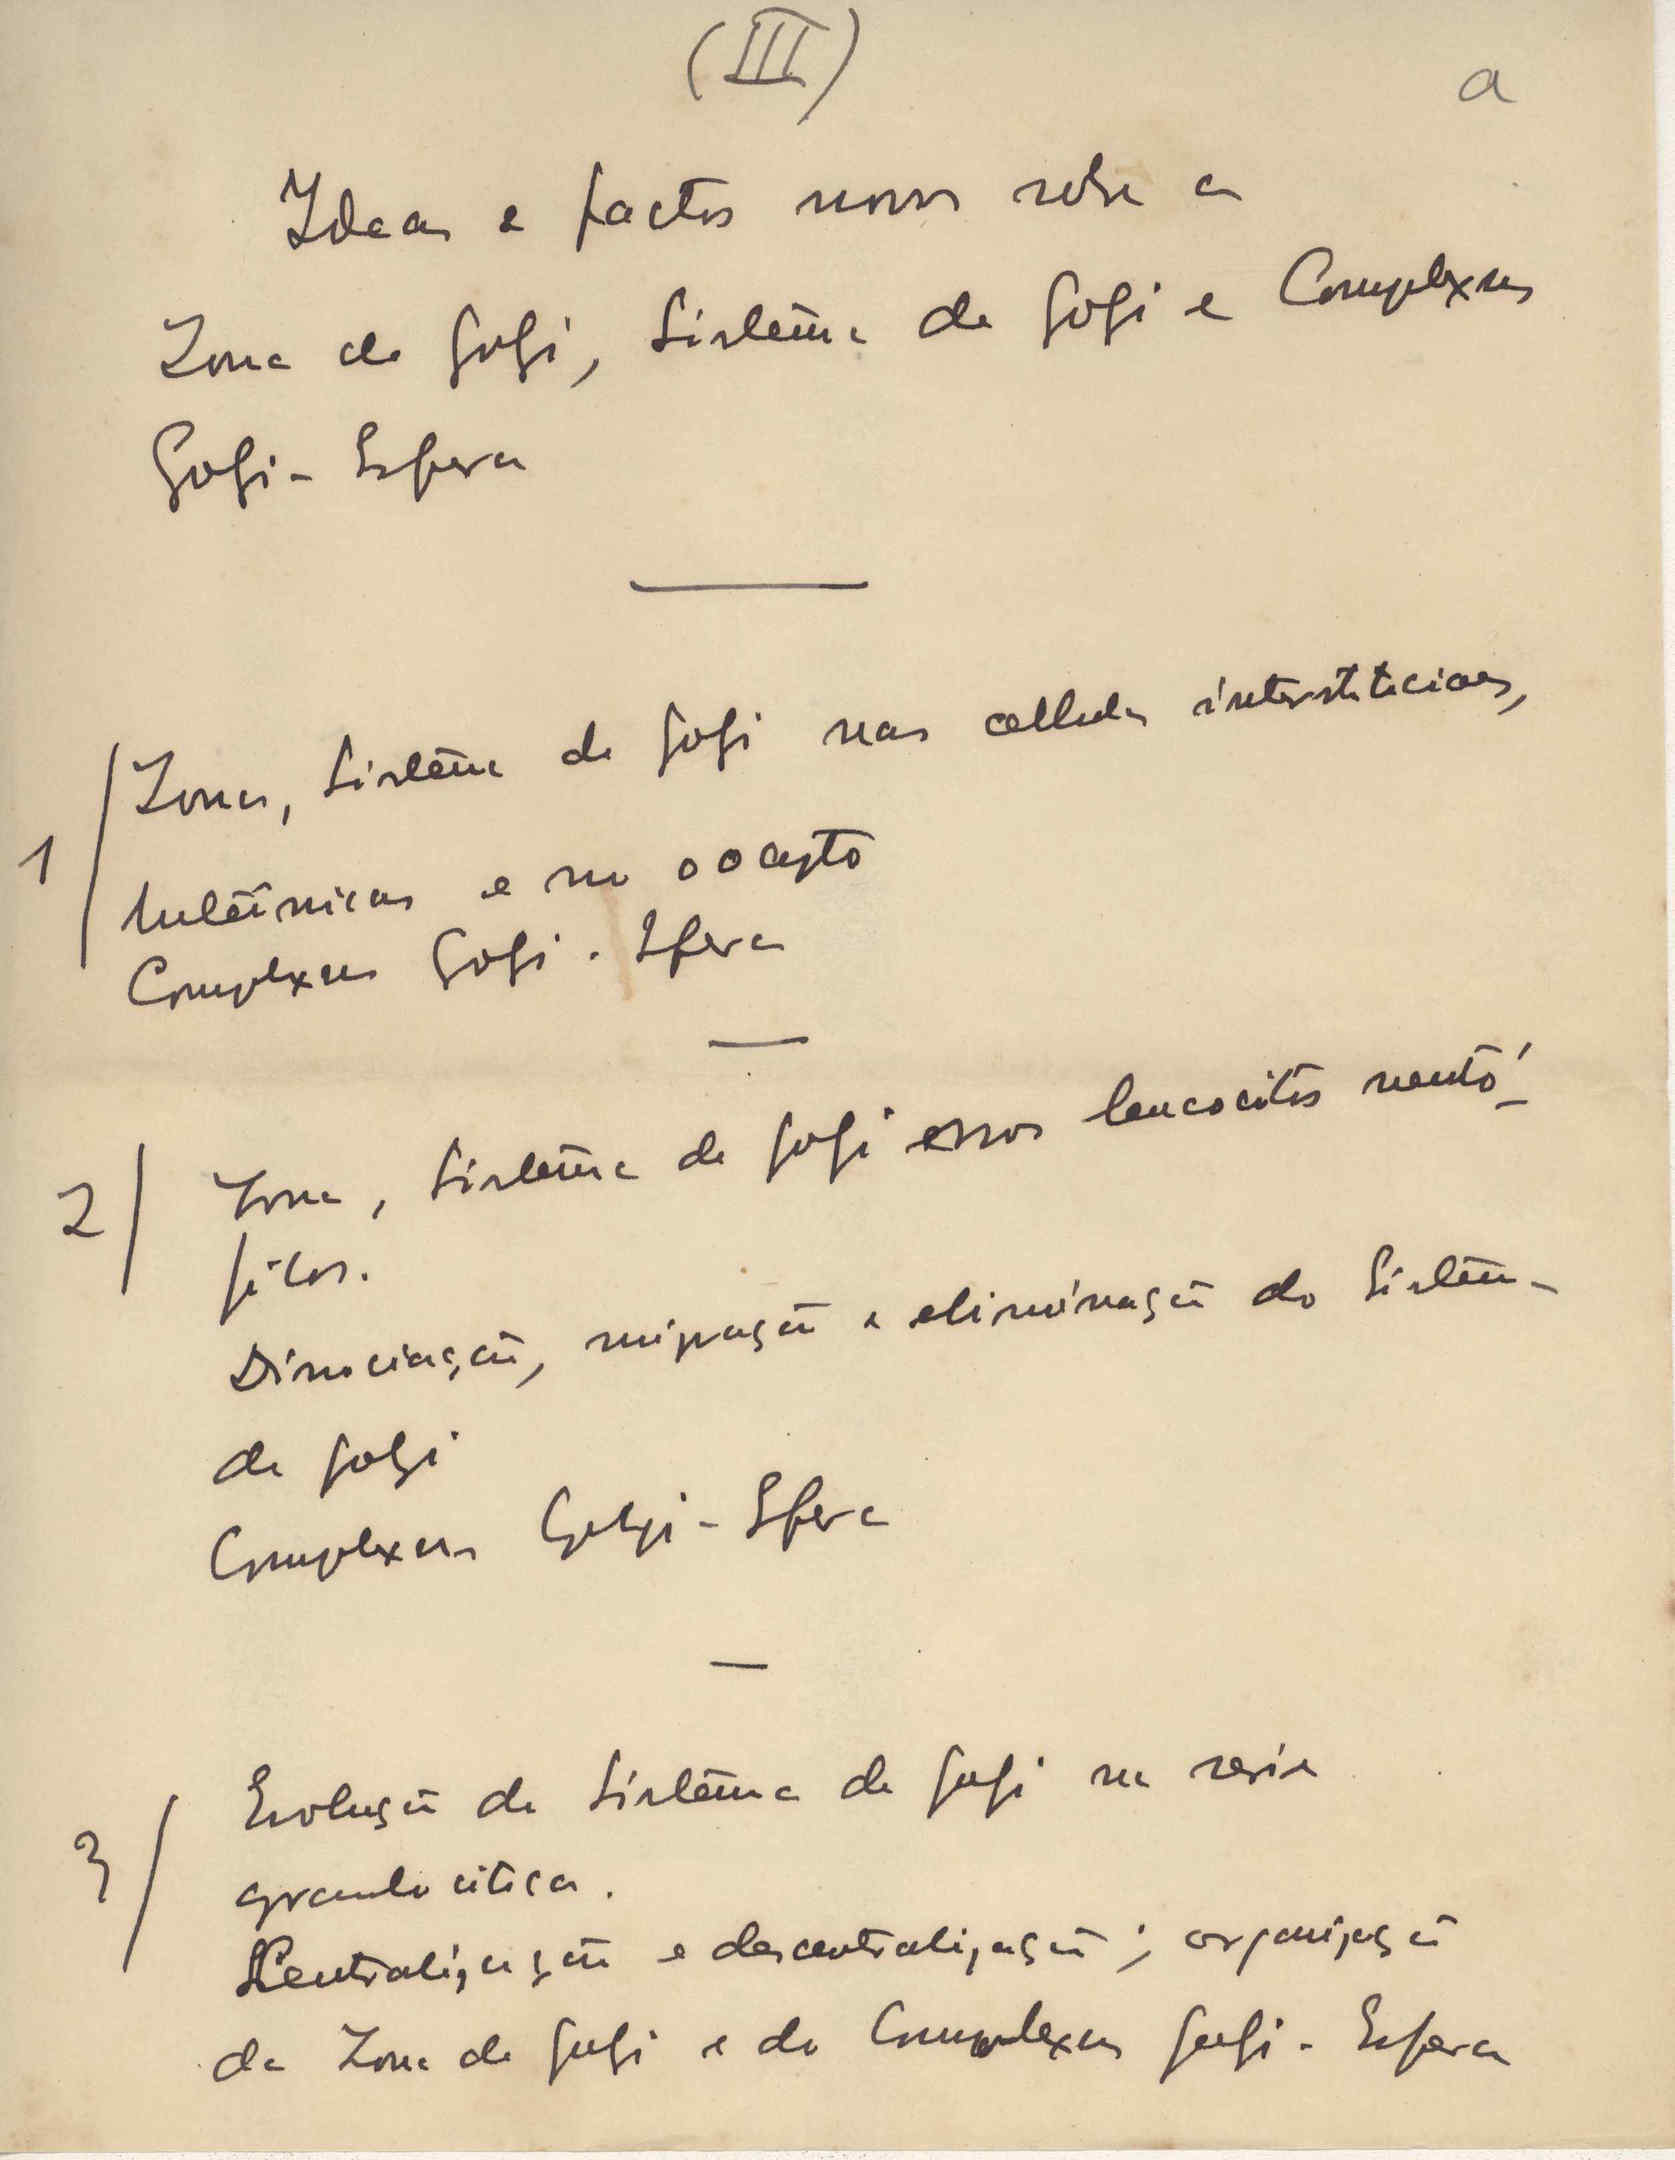 (III)
a
Ideas e factos novos sobre a
Zona de Golgi, Sistema de Golgi e Complexus
Golgi-Esfera
1/ Zona, Sistema de Golgi nas cellulas intersticiaes,
luteinicas e no oocyto
Complexus Golgi-Esfera
2/ Zona, Sistema de Golgi nos leucocitos neutró-
filos.
Dissociação, migração e eliminação do Sistema
de Golgi
Complexus Golgi-Esfera
3/ Evolução do Sistema de Golgi na serie
granulocitica.
Centralização e descentralização; organização
da Zona de Golgi e do Complexus Golgi-Esfera